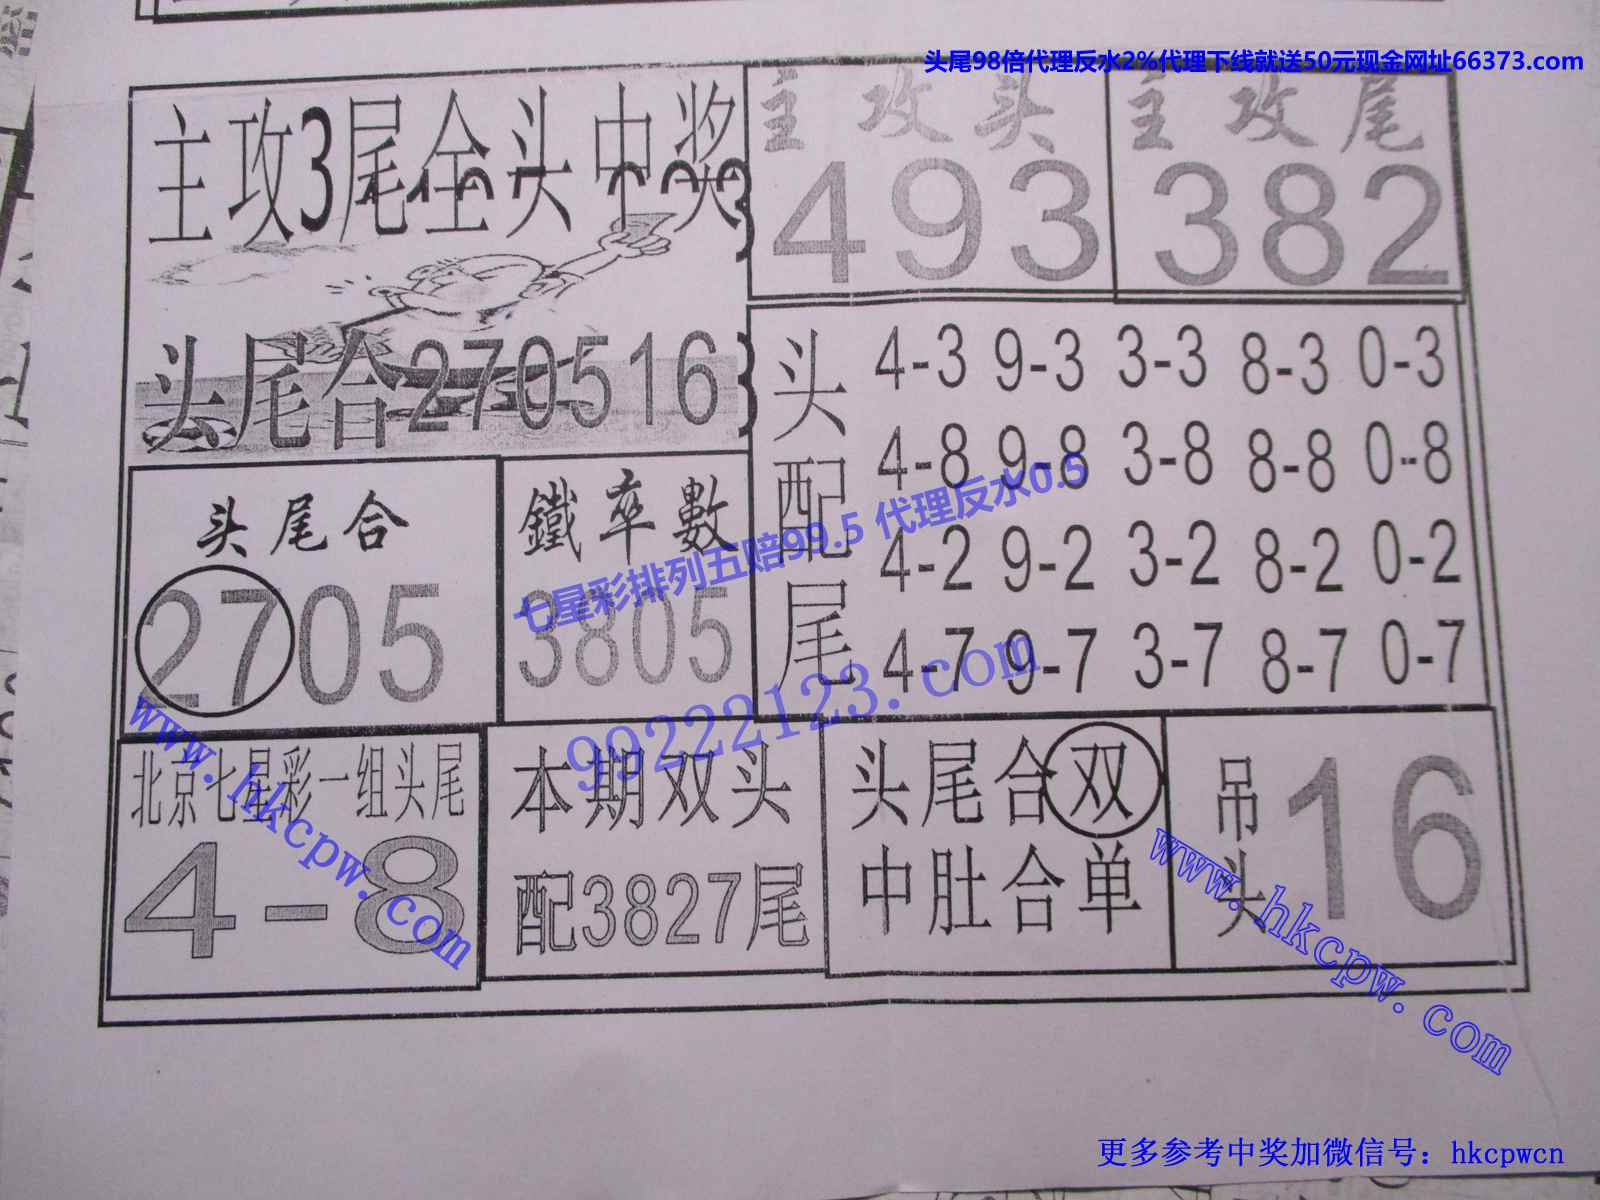 头尾98倍代理反水2%代理下线就送50元现金网址66373.com
主攻3尾全头中奖
主攻头
493
主攻尾
382
头尾合270516
头配尾
4-3 9-3 3-3 8-3 0-3
4-8 9-8 3-8 8-8 0-8
4-2 9-2 3-2 8-2 0-2
4-7 9-7 3-7 8-7 0-7
头尾合
2705
鐵率數
3805
七星彩排列五赔99.5 代理反水0.5
99222123.com
www.hkcpw.com
北京七星彩一组头尾
4-8
本期双头
配3827尾
头尾合双
中肚合单
吊头
16
www.hkcpw.com
更多参考中奖加微信号：hkcpwcn